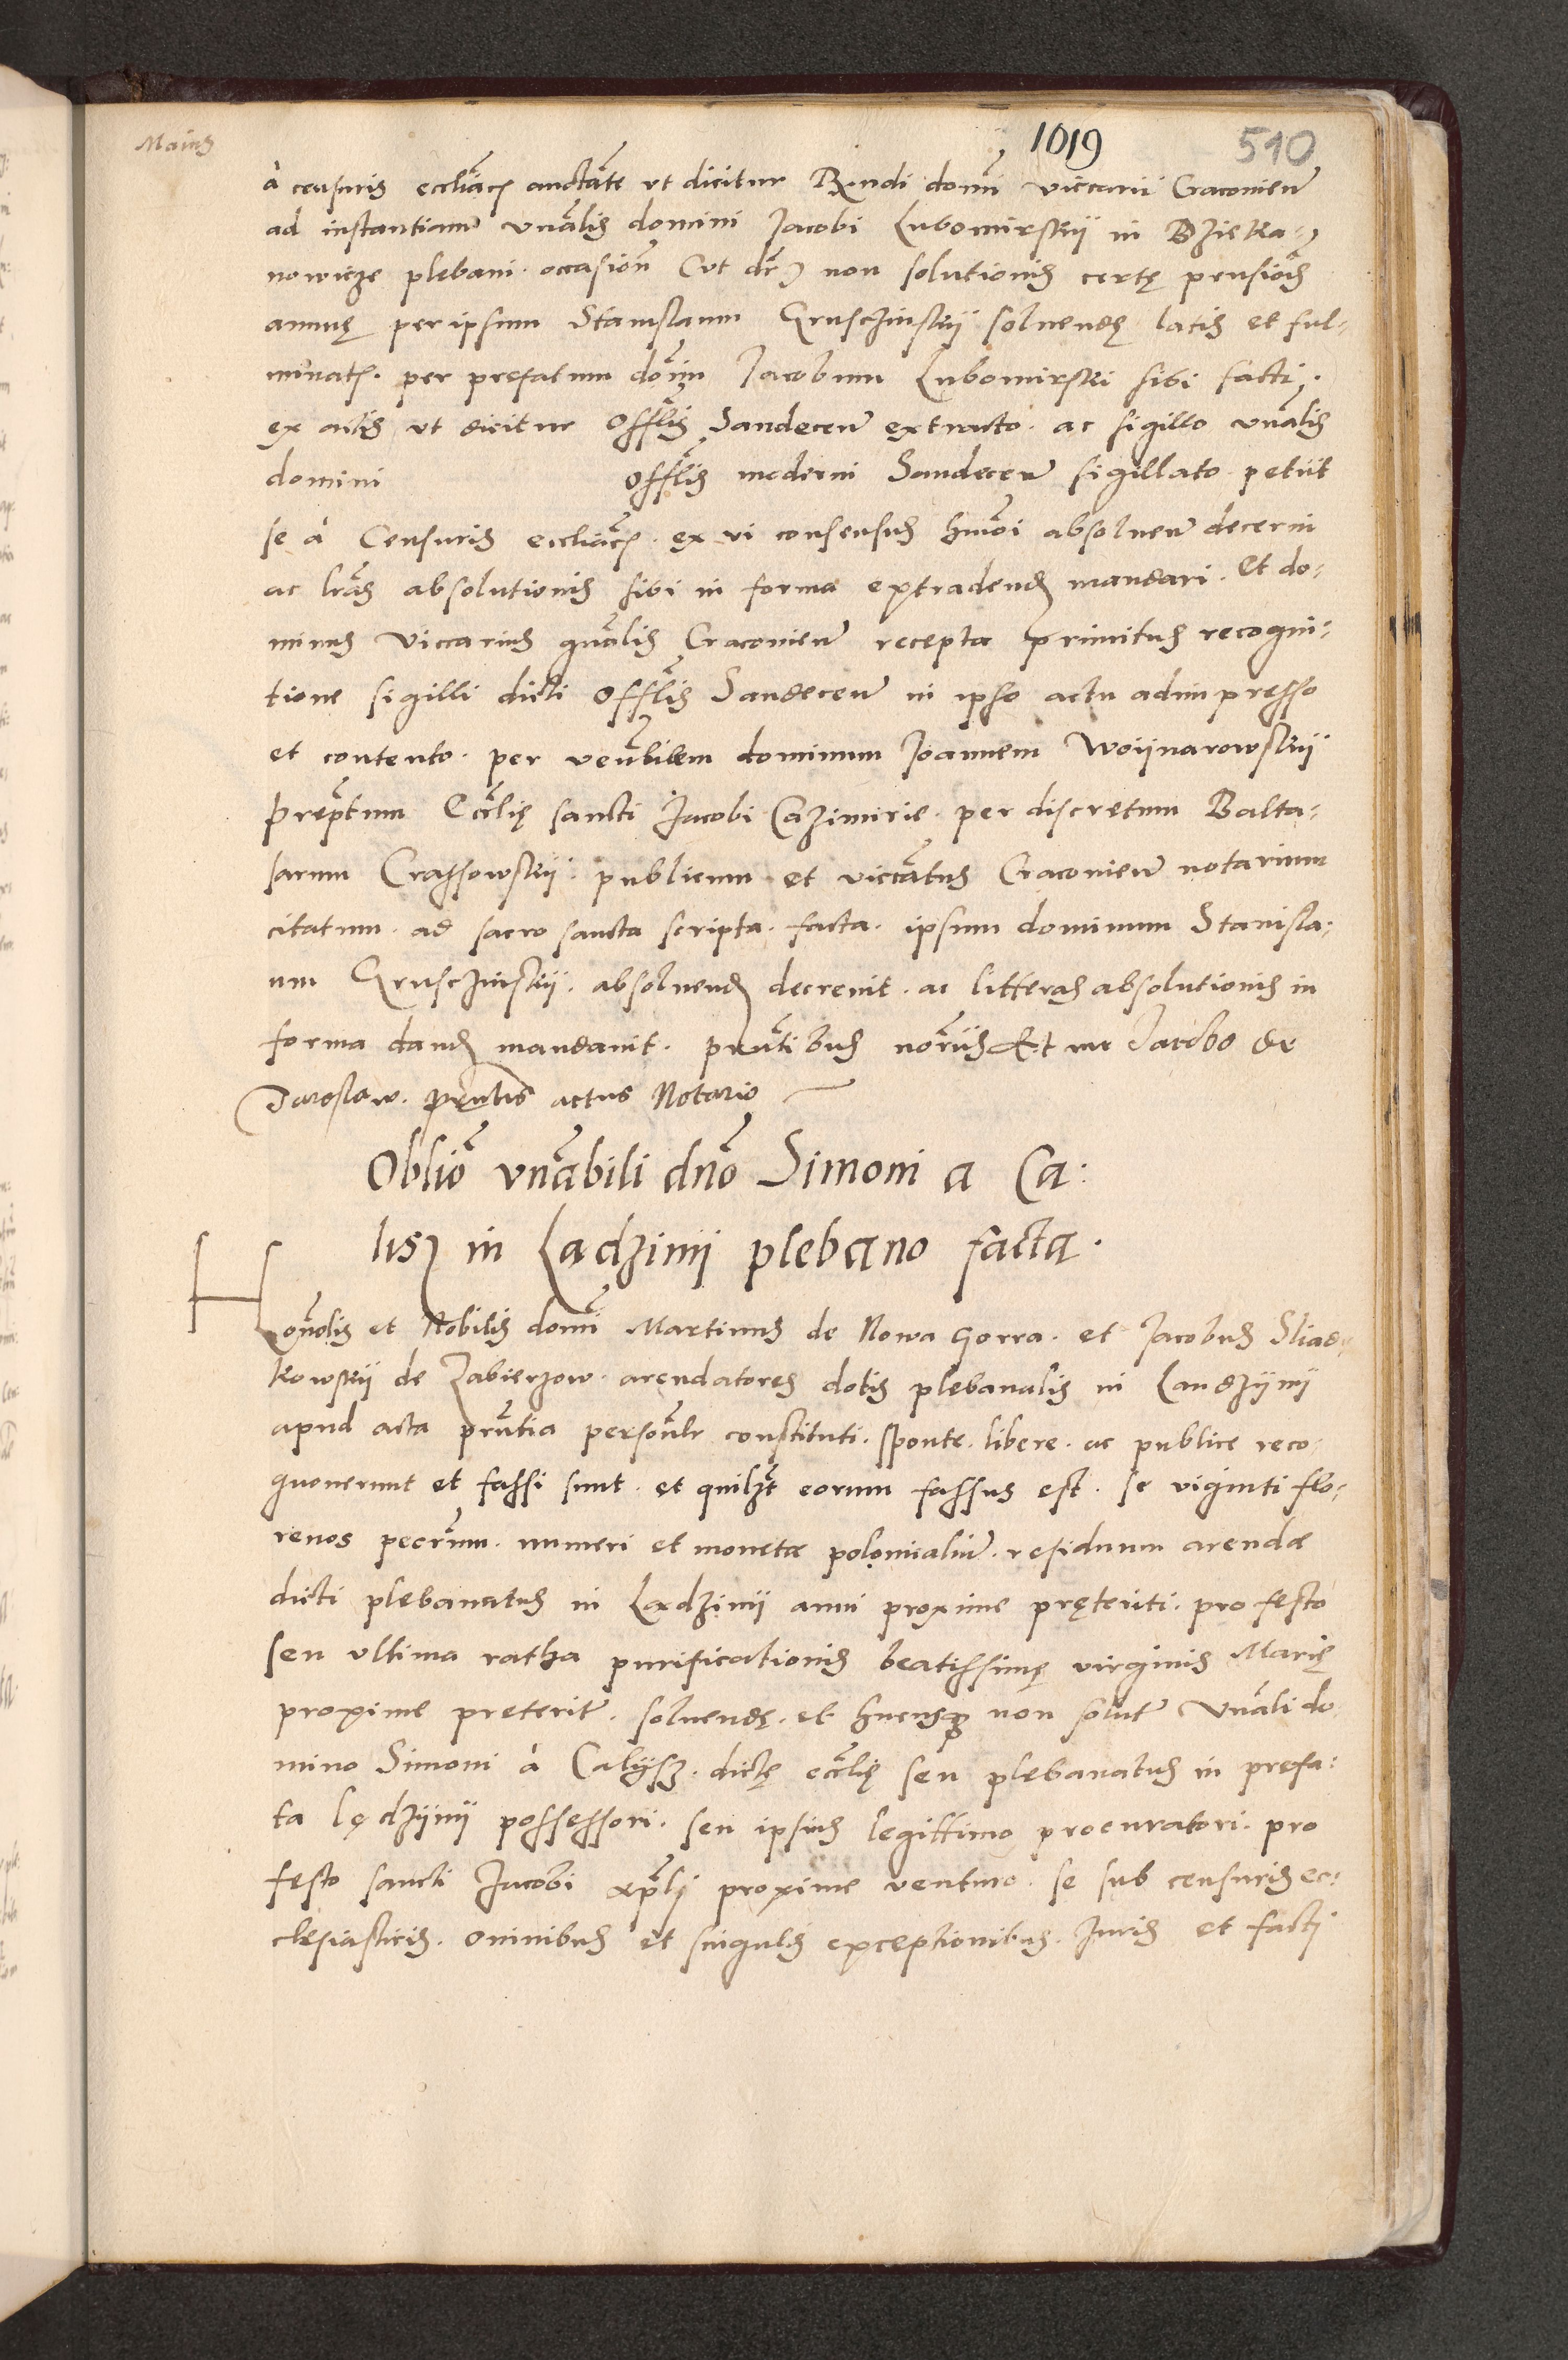 Maius
1019 510
à censuris eccliacs auctate vt dicitur Rndi domi viccarii Cracouien
ad instantiam vnalis domini Jacobi Lubomirskii in Dzieka-
nowicze plebani. occasion (vt dr) non solutionis certę pensiois
annuę per ipsum Stanislaum Gruschinskii soluendę latis et ful-
minats. per prefatum domin Jacobum Lubomirski sibi facti.
ex actis vt dicitur Offlis Sandecen extracto. ac sigillo vnalis
domini Offlis moderni Sandecen sigillato petiit
se à Censuris eccliacs. ex vi consensus hmoi absoluen decerni
ac lras absolutionis sibi in forma extradend mandari. Et do-
minus Viccarius gnalis Cracouien recepta primitus recogni-
tione sigilli dicti Offlis Sandecen in ipso actu adimpresso
et contento. per venlilem dominum Joannem Woijnarowskij
Preptum Ecclię sancti Jacobi Cazimirie. per discretum Balta-
sarum Crassowskij. publicum et viccatus Cracouien notarium
citatum. ad sacro sancta scripta. facta. ipsum dominum Stanisla-
um Gruschinskij. absoluend decreuit. ac litteras absolutionis in
forma dand mandauit. pntibus noriis Et me Jacobo de
Jaroslaw. pntis actus Notario
Oblio vnabili dno Simoni a Ca:
lisz in Ladzinij plebano facta.
Honolis et Nobilis domi Martinus de Nowa Gorra. et Jacobus Sliad
kowskij de Zabierzow. arendatores dotis plebanalis in Landzijnij
apud acta pntia personlr constituti. sponte. libere. ac publice reco-
gnouerunt et fassi sunt. et quilzt eorum fassus est. se viginti flo-
renos pecrum. numeri et monetæ polonicalium. residuum arendæ
dicti plebanatus in Ladzinij anni proxime pręteriti. pro festo
seu vltima ratha purificationis beatissimę virginis Marię
proxime preterit. soluendę. et hucusq non solut Vnali do
mino Simoni à Calijsz. dictę ecclię seu plebanatus in prefa:
ta lędzijnij possessori. seu ipsius legittimo procuratori. pro
festo sancti Jacobi apli proxime venturo. se sub censuris ec:
clesiasticis. omnibus et singulis exceptionibus. Juris et facti